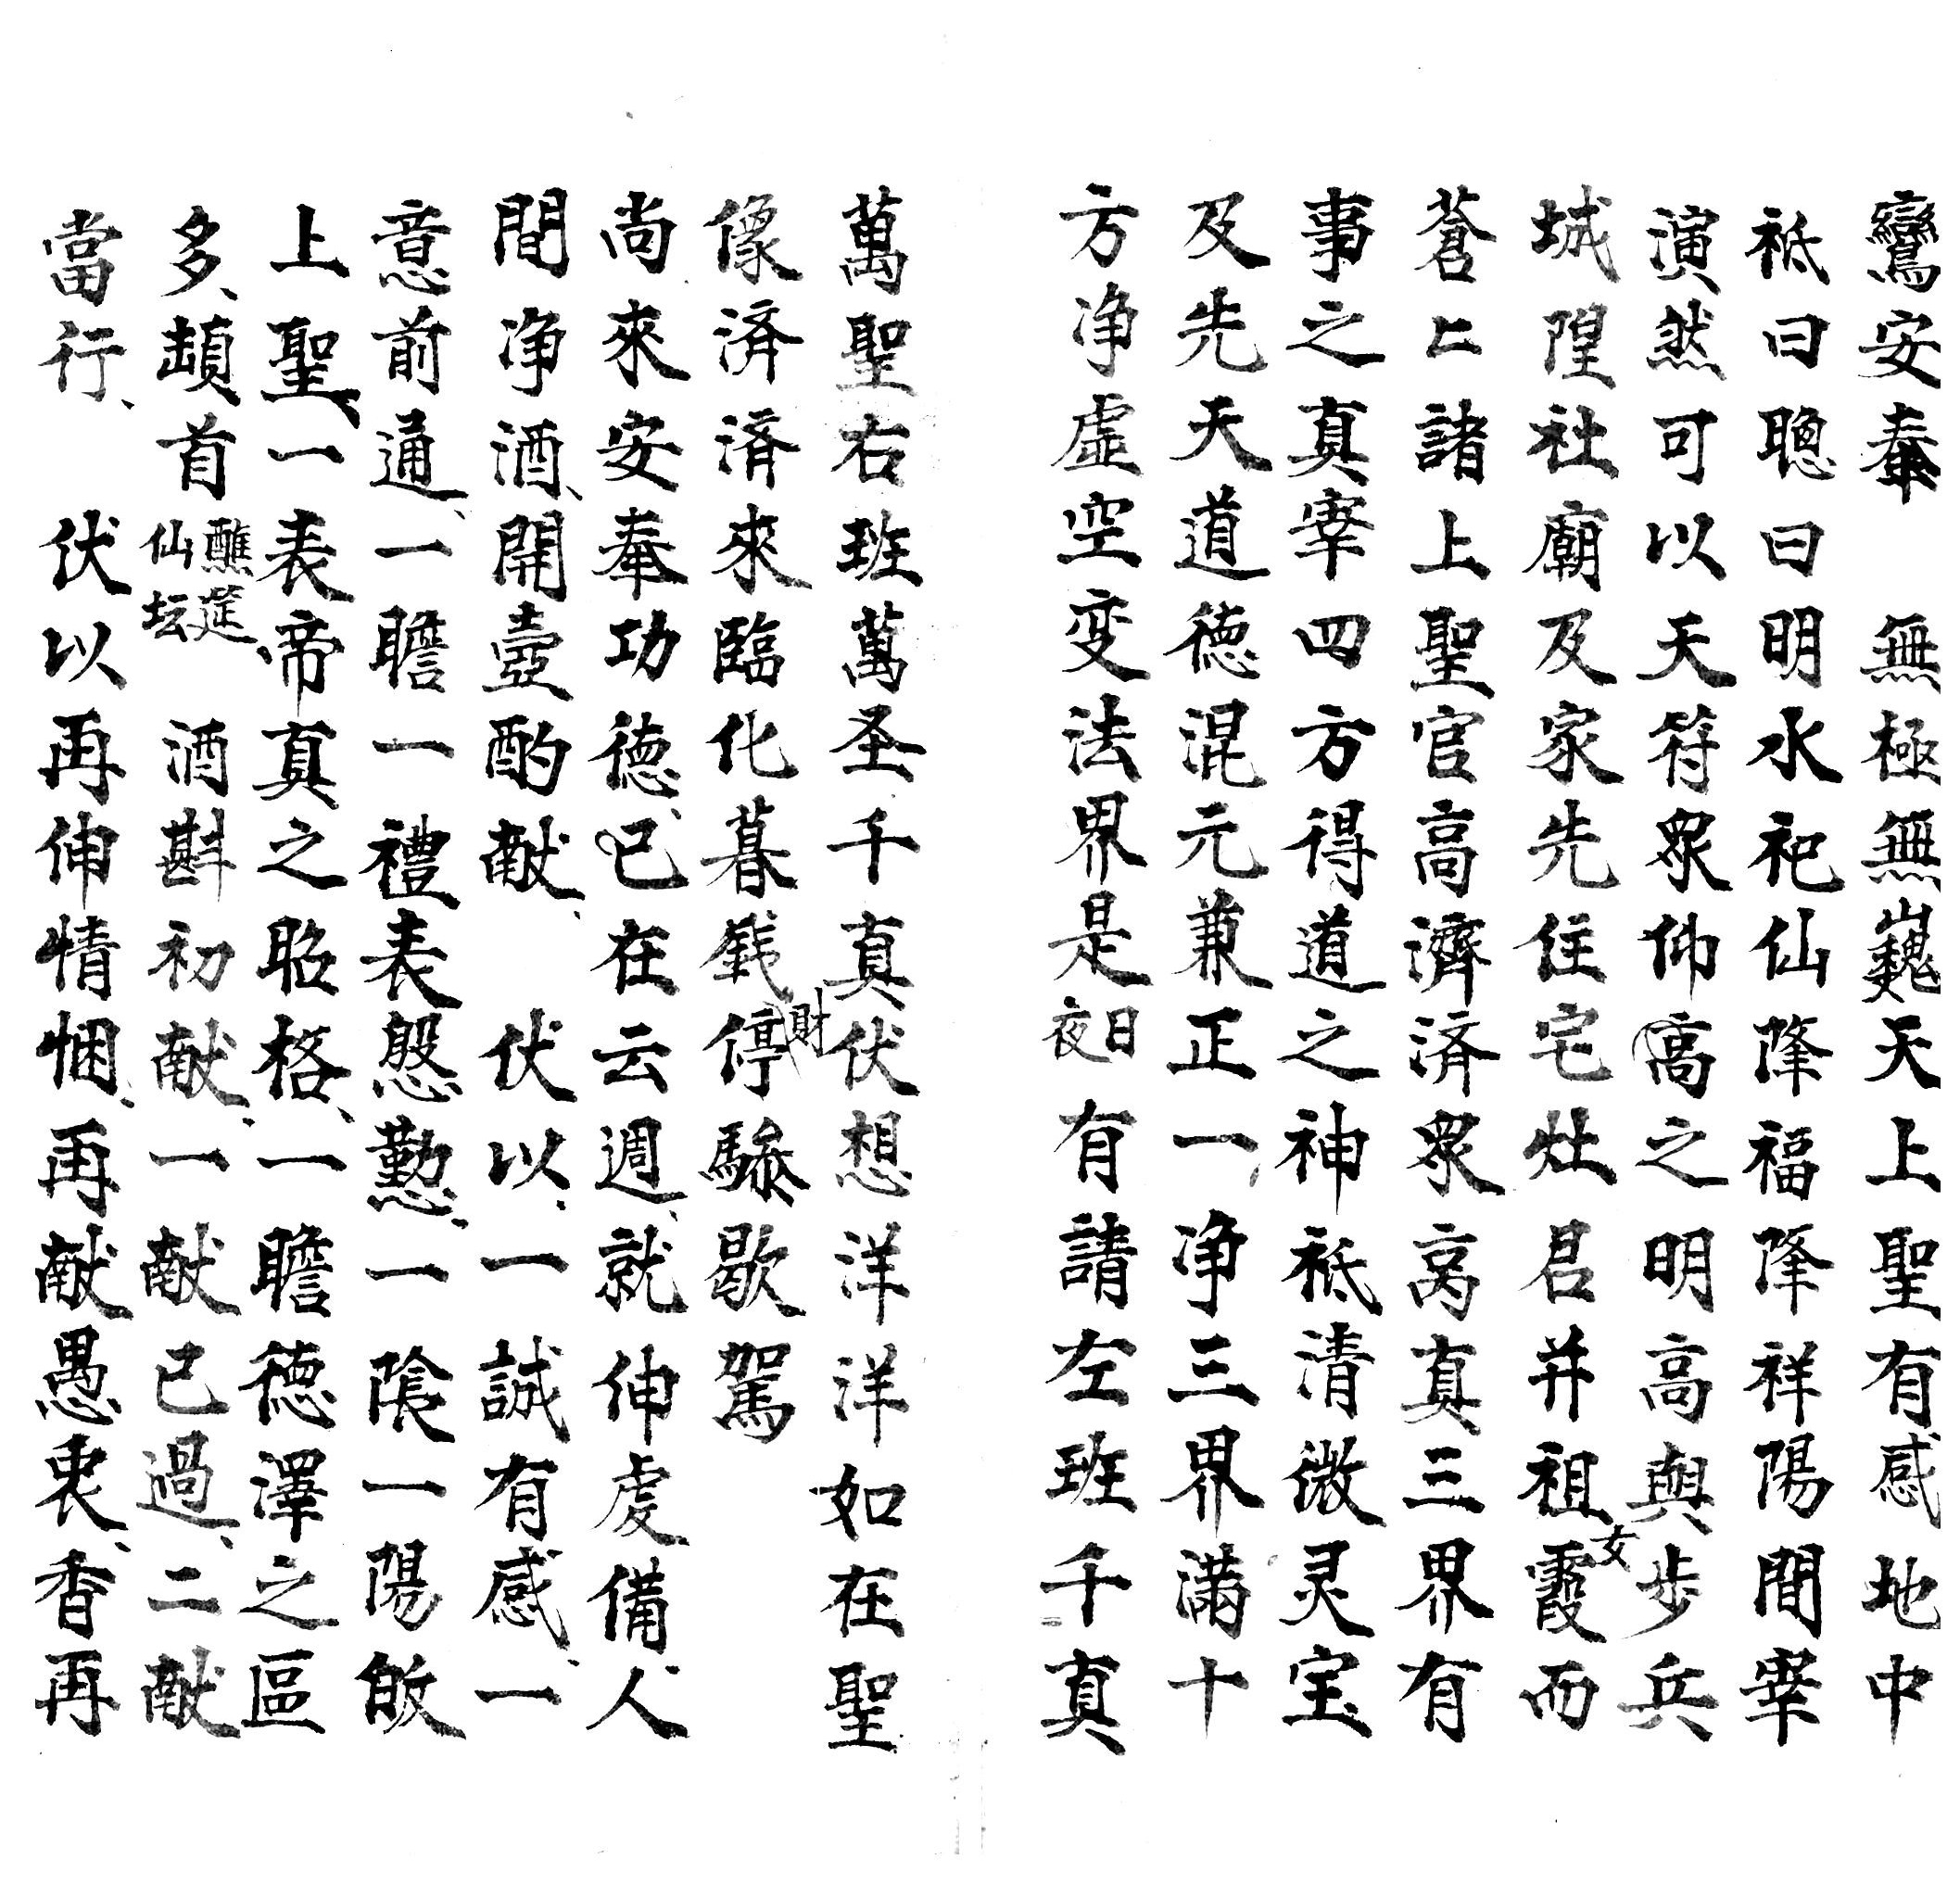 鸞安奉　無極無巍天上聖有感地中
祗曰聰曰明水祀仙降福降祥陽間宰
演然可以天符眾仰高之明高與步兵
城隍社廟及家先住宅灶君并祖霞女而
蒼〻諸上聖官高濟済眾高真三界有
事之真宰四方得道之神祗清微灵宝
及先天道德混元兼正一净三界滿十
方净虛空变法界是日夜有請左班千真
萬聖右班萬圣千真伏想洋洋如在聖
像済済來臨化暮錢財停驂歇駕
尚來安奉功德、已在云週、就伸虔備人
間净酒、開壺酌献、　伏以、一誠有感、一
意前通、一瞻一禮表慇懃、一陰一陽皈
上聖、一表帝真之昭格、一瞻德澤之區
多、頼首醮筵仙坛　酒斟初献、一献已過、二献
當行、　伏以再伸情悃、再献愚衷、香再